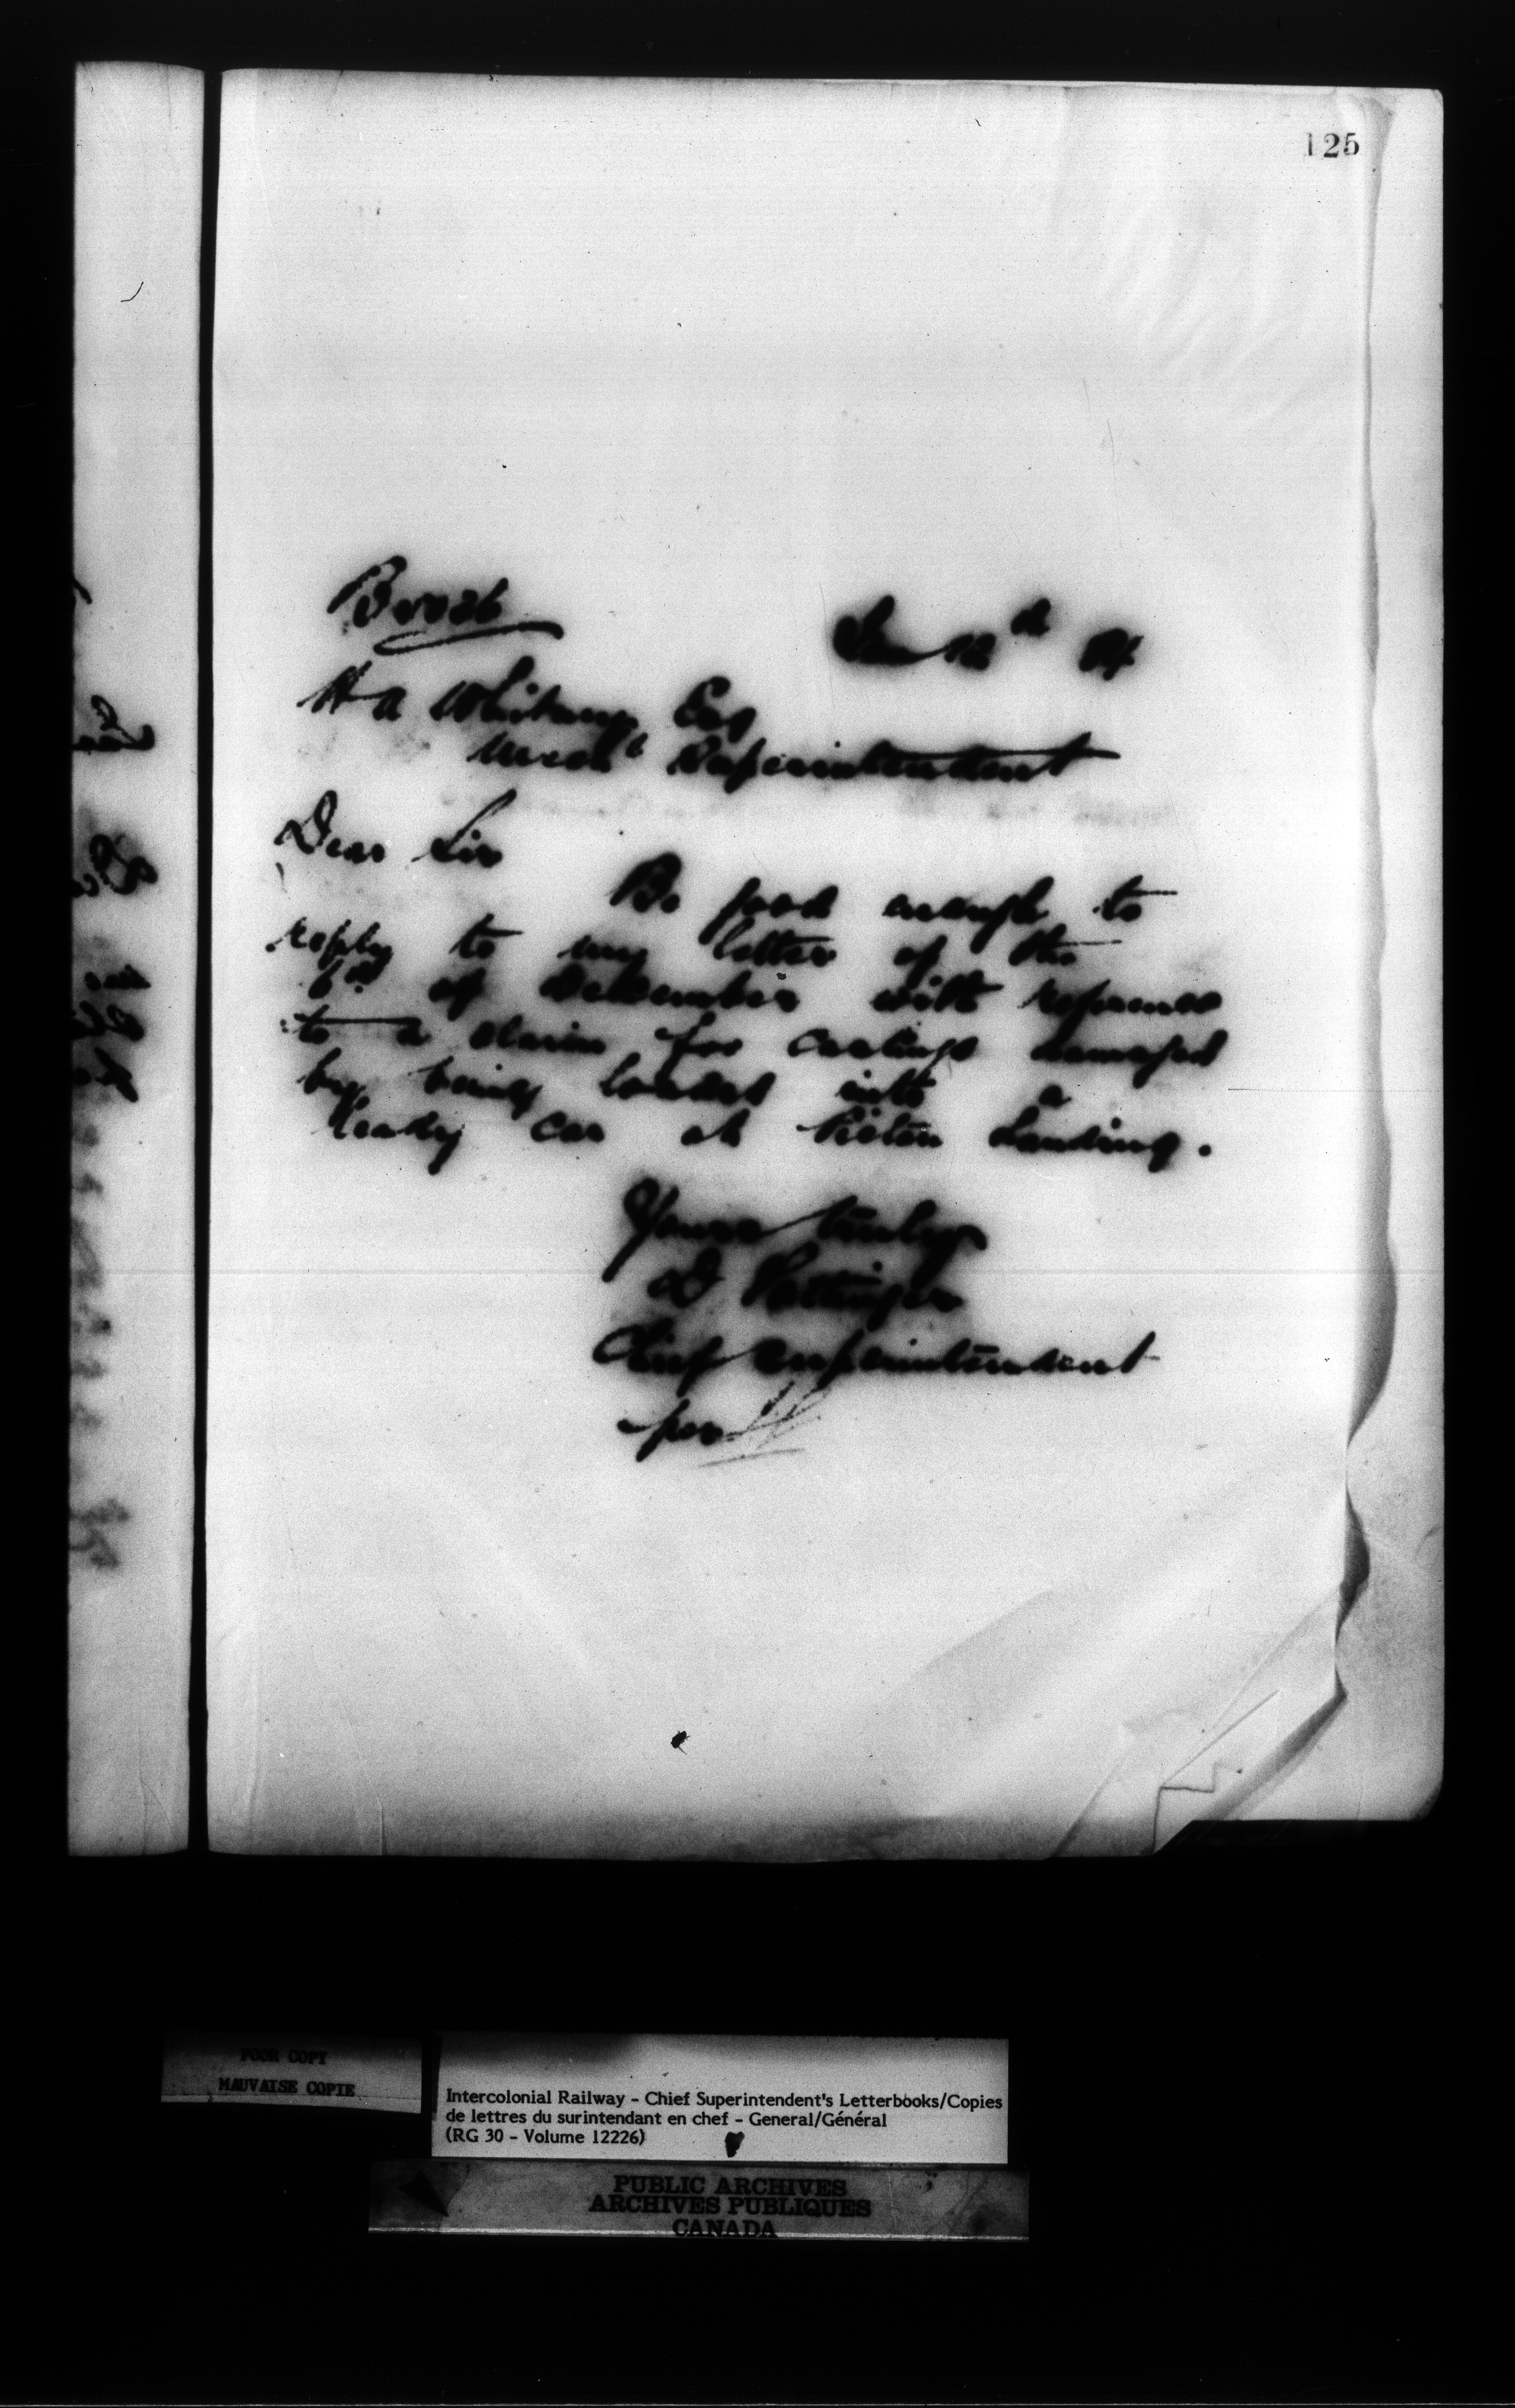 125
Jan 12th 84
H A Whitney Esq
Mechl Superintendent
Dear Sir
Be good enough to
reply to my letter of the
6th of December with reference
to a claim for castings damaged
by being loaded into a
leaky car at Pictou Landing.
Yours truly
D Pottinger
Chief Superintendent
per
POOR COPY
MAUVAISE COPIE
Intercolonial Railway - Chief Superintendent's Letterbooks/Copies
de lettres du surintendant en chef - General/Général
(RG 30 - Volume 12226)
PUBLIC ARCHIVES
ARCHIVES PUBLIQUES
CANADA